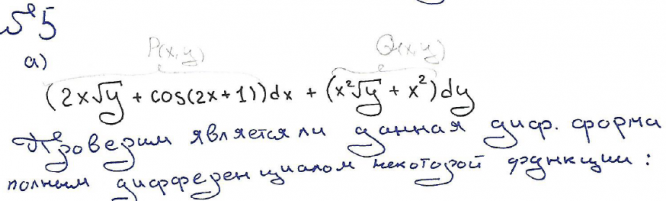 №5
P(x,y) Q(x,y)
а)
(2x√y + cos(2x+1))dx + (x²√y + x²)dy
Проверим является ли данная диф. форма
полным дифференциалом некоторой функции: